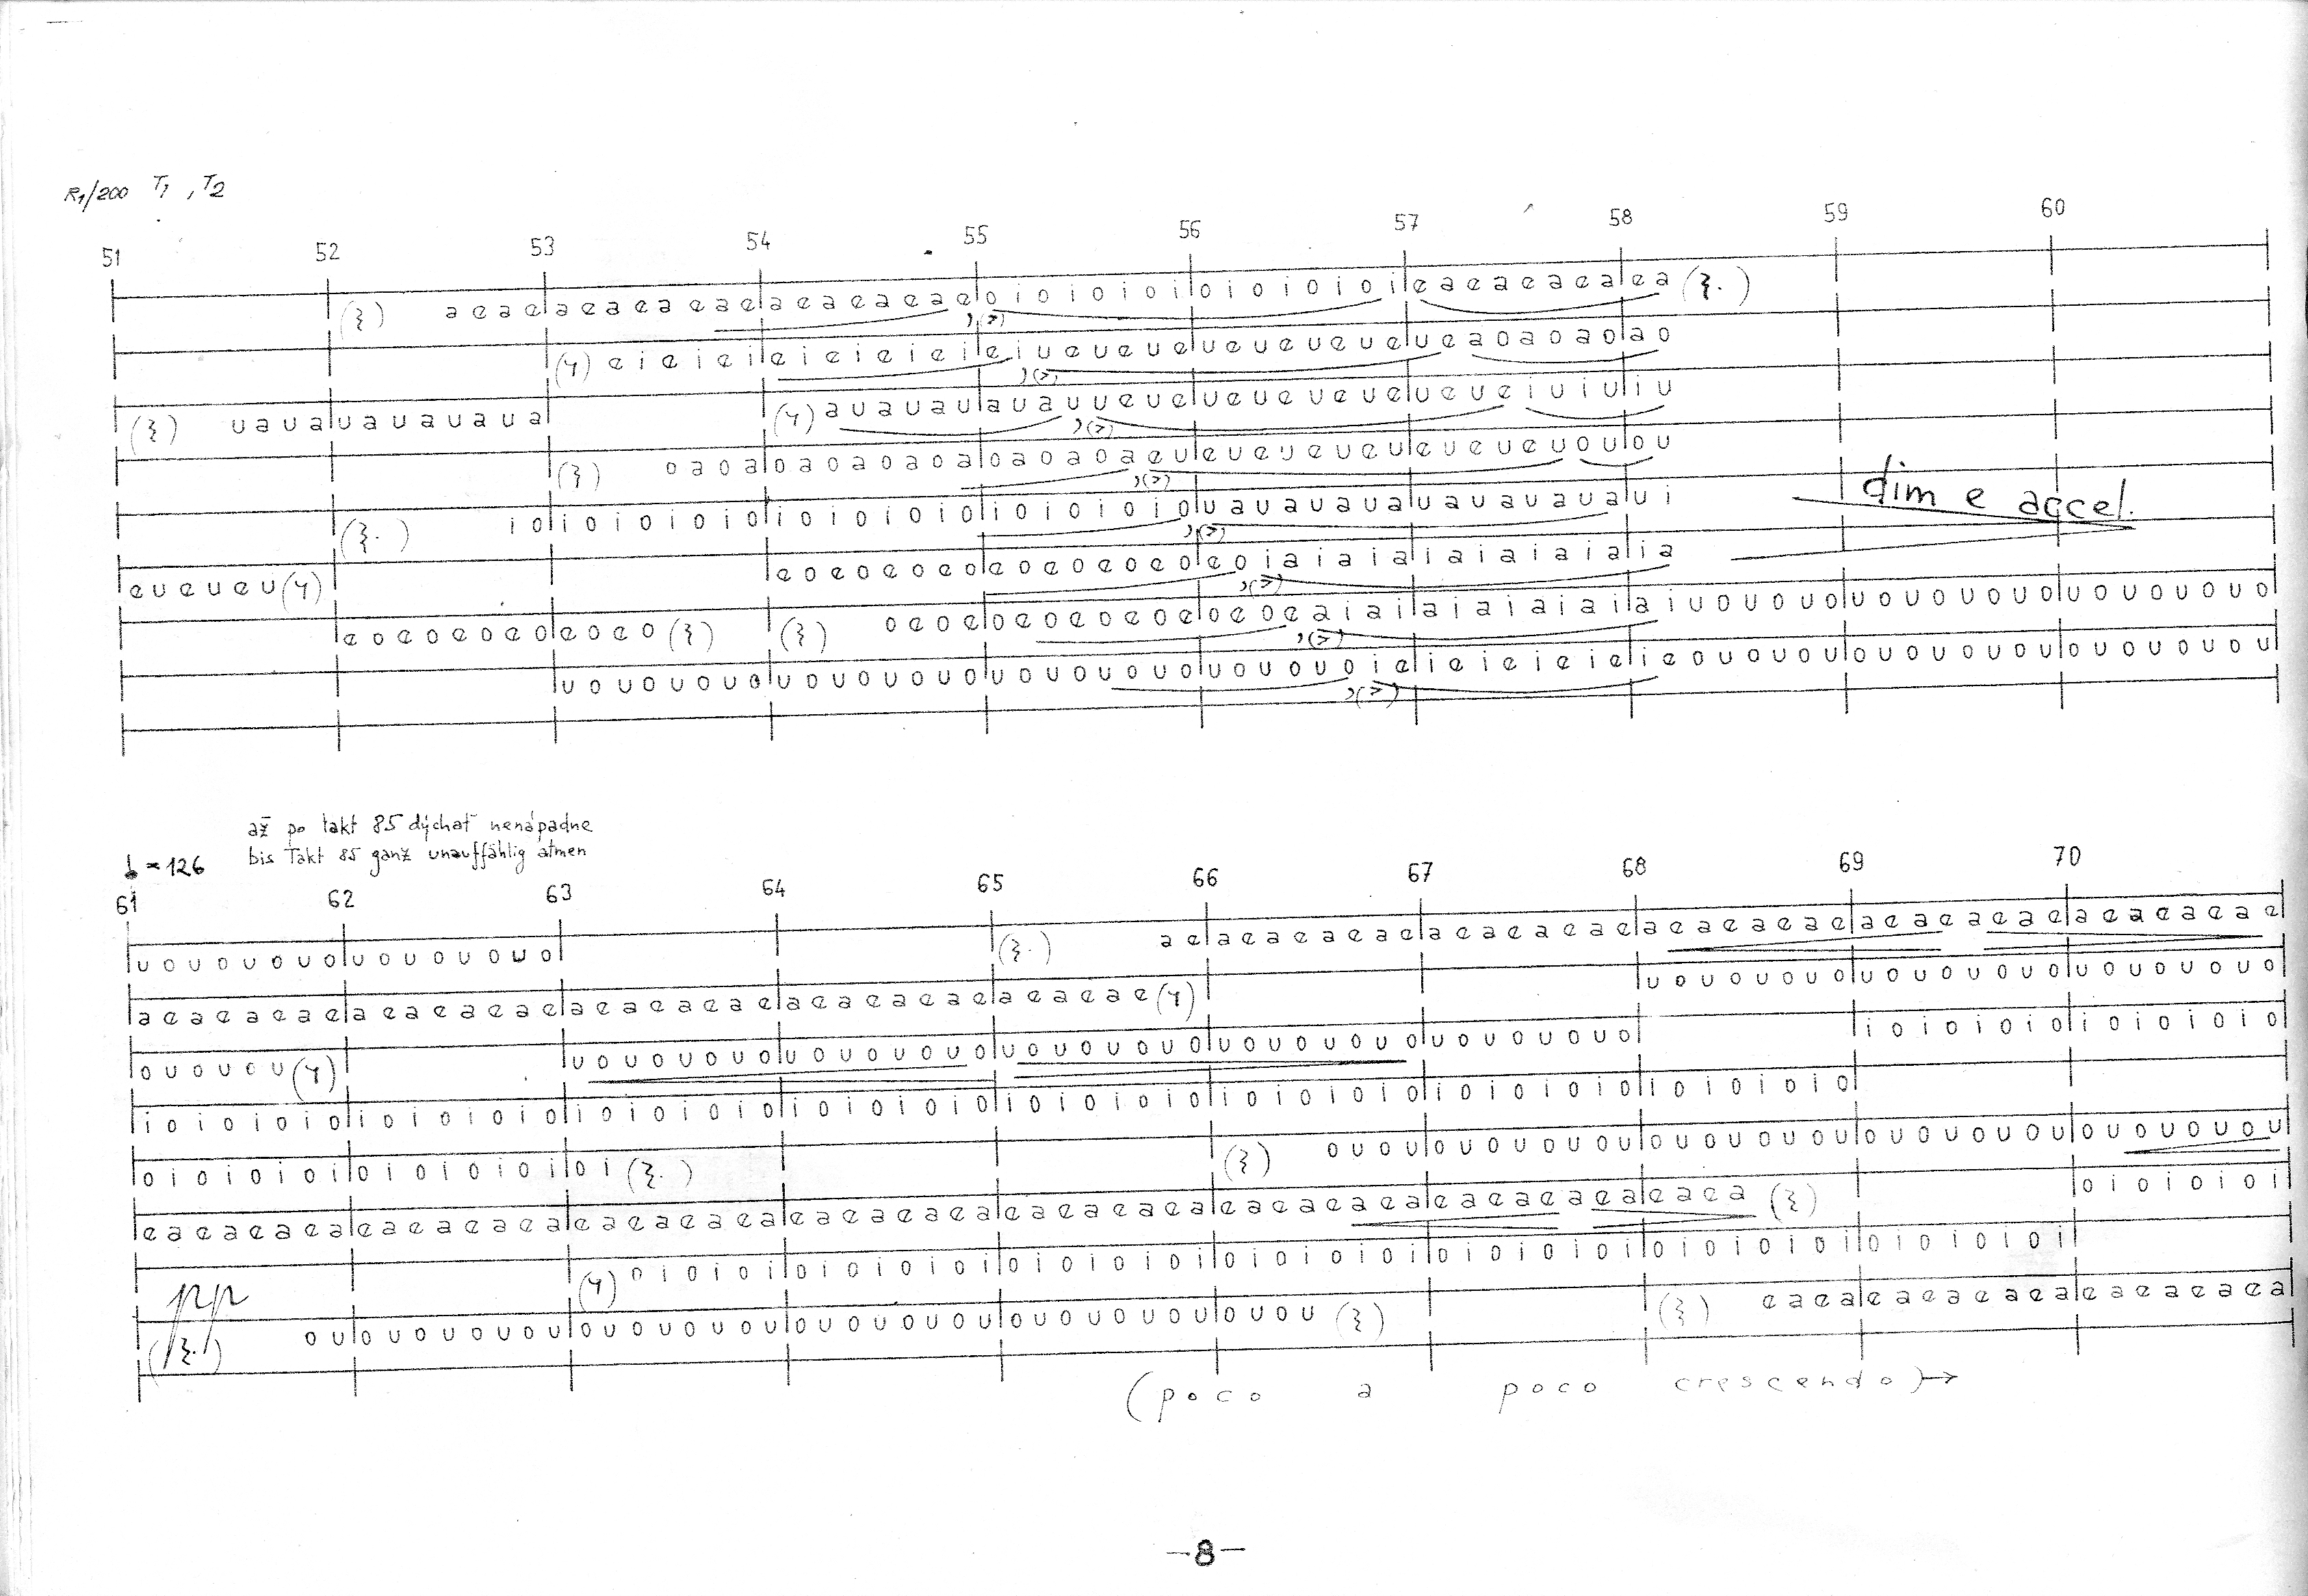 R1/200 T1, T2
51 52 53 54 55 56 57 58 59 60
(𝄽) a e a e | a e a e a e a e | a e a e a e a e | o i o i o i o i | o i o i o i o i | e a e a e a e a | e a (𝄽.)
, (>)
(𝄾) e i e i e i | e i e i e i e i | e i u e u e u e | u e u e u e u e | u e a o a o a o | a o
, (>)
(𝄽) u a u a | u a u a u a u a | (𝄾) a u a u a u | a u a u u e u e | u e u e u e u e | u e u e i u i u | i u
, (>)
(𝄽) o a o a | o a o a o a o a | o a o a o a e u | e u e u e u e u | e u e u e u o u | o u
, (>)
(𝄽.) i o | i o i o i o i o | i o i o i o i o | i o i o i o i o | u a u a u a u a | u a u a u a u a | u i
dim e accel.
, (>)
e u e u e u (𝄾) | e o e o e o e o | e o e o e o e o | e o i a i a i a | i a i a i a i a | i a
, (>)
e o e o e o e o | e o e o (𝄽) | (𝄽) o e o e | o e o e o e o e | o e o e a i a i | a i a i a i a i | a i u o u o u o | u o u o u o u o | u o u o u o u o
, (>)
u o u o u o u o | u o u o u o u o | u o u o u o u o | u o u o u o i e | i e i e i e i e | i e o u o u o u | o u o u o u o u | o u o u o u o u
, (>)
až po takt 85 dýchať nenápadne
♪ = 126 bis Takt 85 ganz unauffählig atmen
61 62 63 64 65 66 67 68 69 70
u o u o u o u o | u o u o u o u o | (𝄽.) a e | a e a e a e a e | a e a e a e a e | a e a e a e a e | a e a e a e a e | a e a e a e a e
a e a e a e a e | a e a e a e a e | a e a e a e a e | a e a e a e a e | a e a e a e (𝄾) | u o u o u o u o | u o u o u o u o | u o u o u o u o
o u o u o u (𝄾) | u o u o u o u o | u o u o u o u o | u o u o u o u o | u o u o u o u o | u o u o u o u o | i o i o i o i o | i o i o i o i o
i o i o i o i o | i o i o i o i o | i o i o i o i o | i o i o i o i o | i o i o i o i o | i o i o i o i o | i o i o i o i o | i o i o i o i o
o i o i o i o i | o i o i o i o i | o i (𝄽.) | (𝄽) o u o u | o u o u o u o u | o u o u o u o u | o u o u o u o u | o u o u o u o u
e a e a e a e a | e a e a e a e a | e a e a e a e a | e a e a e a e a | e a e a e a e a | e a e a e a e a | e a e a e a e a | e a e a (𝄽) | o i o i o i o i
(𝄾) o i o i o i | o i o i o i o i | o i o i o i o i | o i o i o i o i | o i o i o i o i | o i o i o i o i | o i o i o i o i
pp
(𝄽.) o u | o u o u o u o u | o u o u o u o u | o u o u o u o u | o u o u o u o u | o u o u (𝄽) | (𝄽) e a e a | e a e a e a e a | e a e a e a e a
(poco a poco crescendo) →
—8—